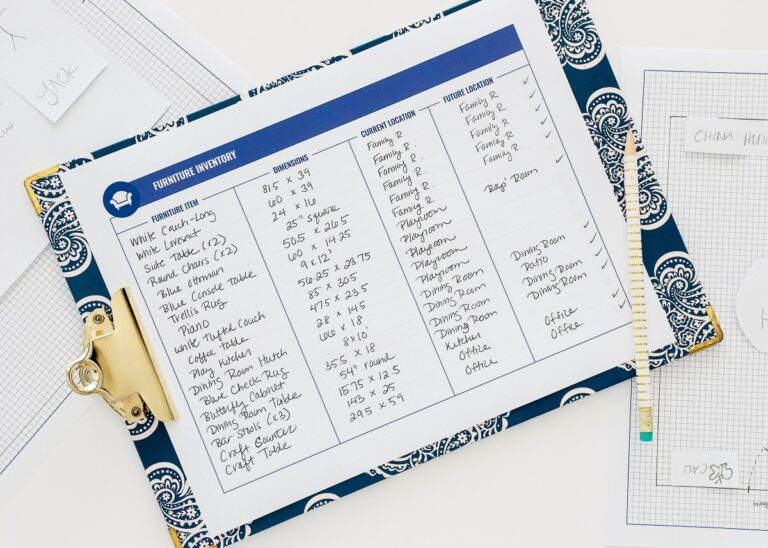 JACK
FURNITURE INVENTORY
FURNITURE ITEM
White Couch-Long
White Loveseat
Side Table (x2)
Round Chairs (x2)
Blue Ottoman
Blue Console Table
Trellis Rug
Piano
White Tufted Couch
Coffee Table
Play Kitchen
Dining Room Hutch
Blue Check Rug
Butterfly Cabinet
Dining Room Table
Bar Stools (x3)
Craft Counter
Craft Table
DIMENSIONS
81.5 x 39
60 x 39
24 x 16
25" square
50.5 x 26.5
60 x 14.25
9 x 12'
56.25 x 23.75
85 x 30.5
47.5 x 23.5
28 x 14.5
66 x 18
8 x 10'
35.5 x 18
54" round
15.75 x 12.5
143 x 25
29.5 x 59
CURRENT LOCATION
Family R
Family R.
Family R.
Family R.
Family R.
Family R
Playroom
Playroom
Playroom
Playroom
Playroom
Dining Room
Dining Room
Dining Room
Dining Room
Kitchen
Office
Office
FUTURE LOCATION
Family R
Family R.
Family R
Family R
Family R
Boys' Room
Dining Room
Patio
Dining Room
Dining Room
Office
Office
CHINA